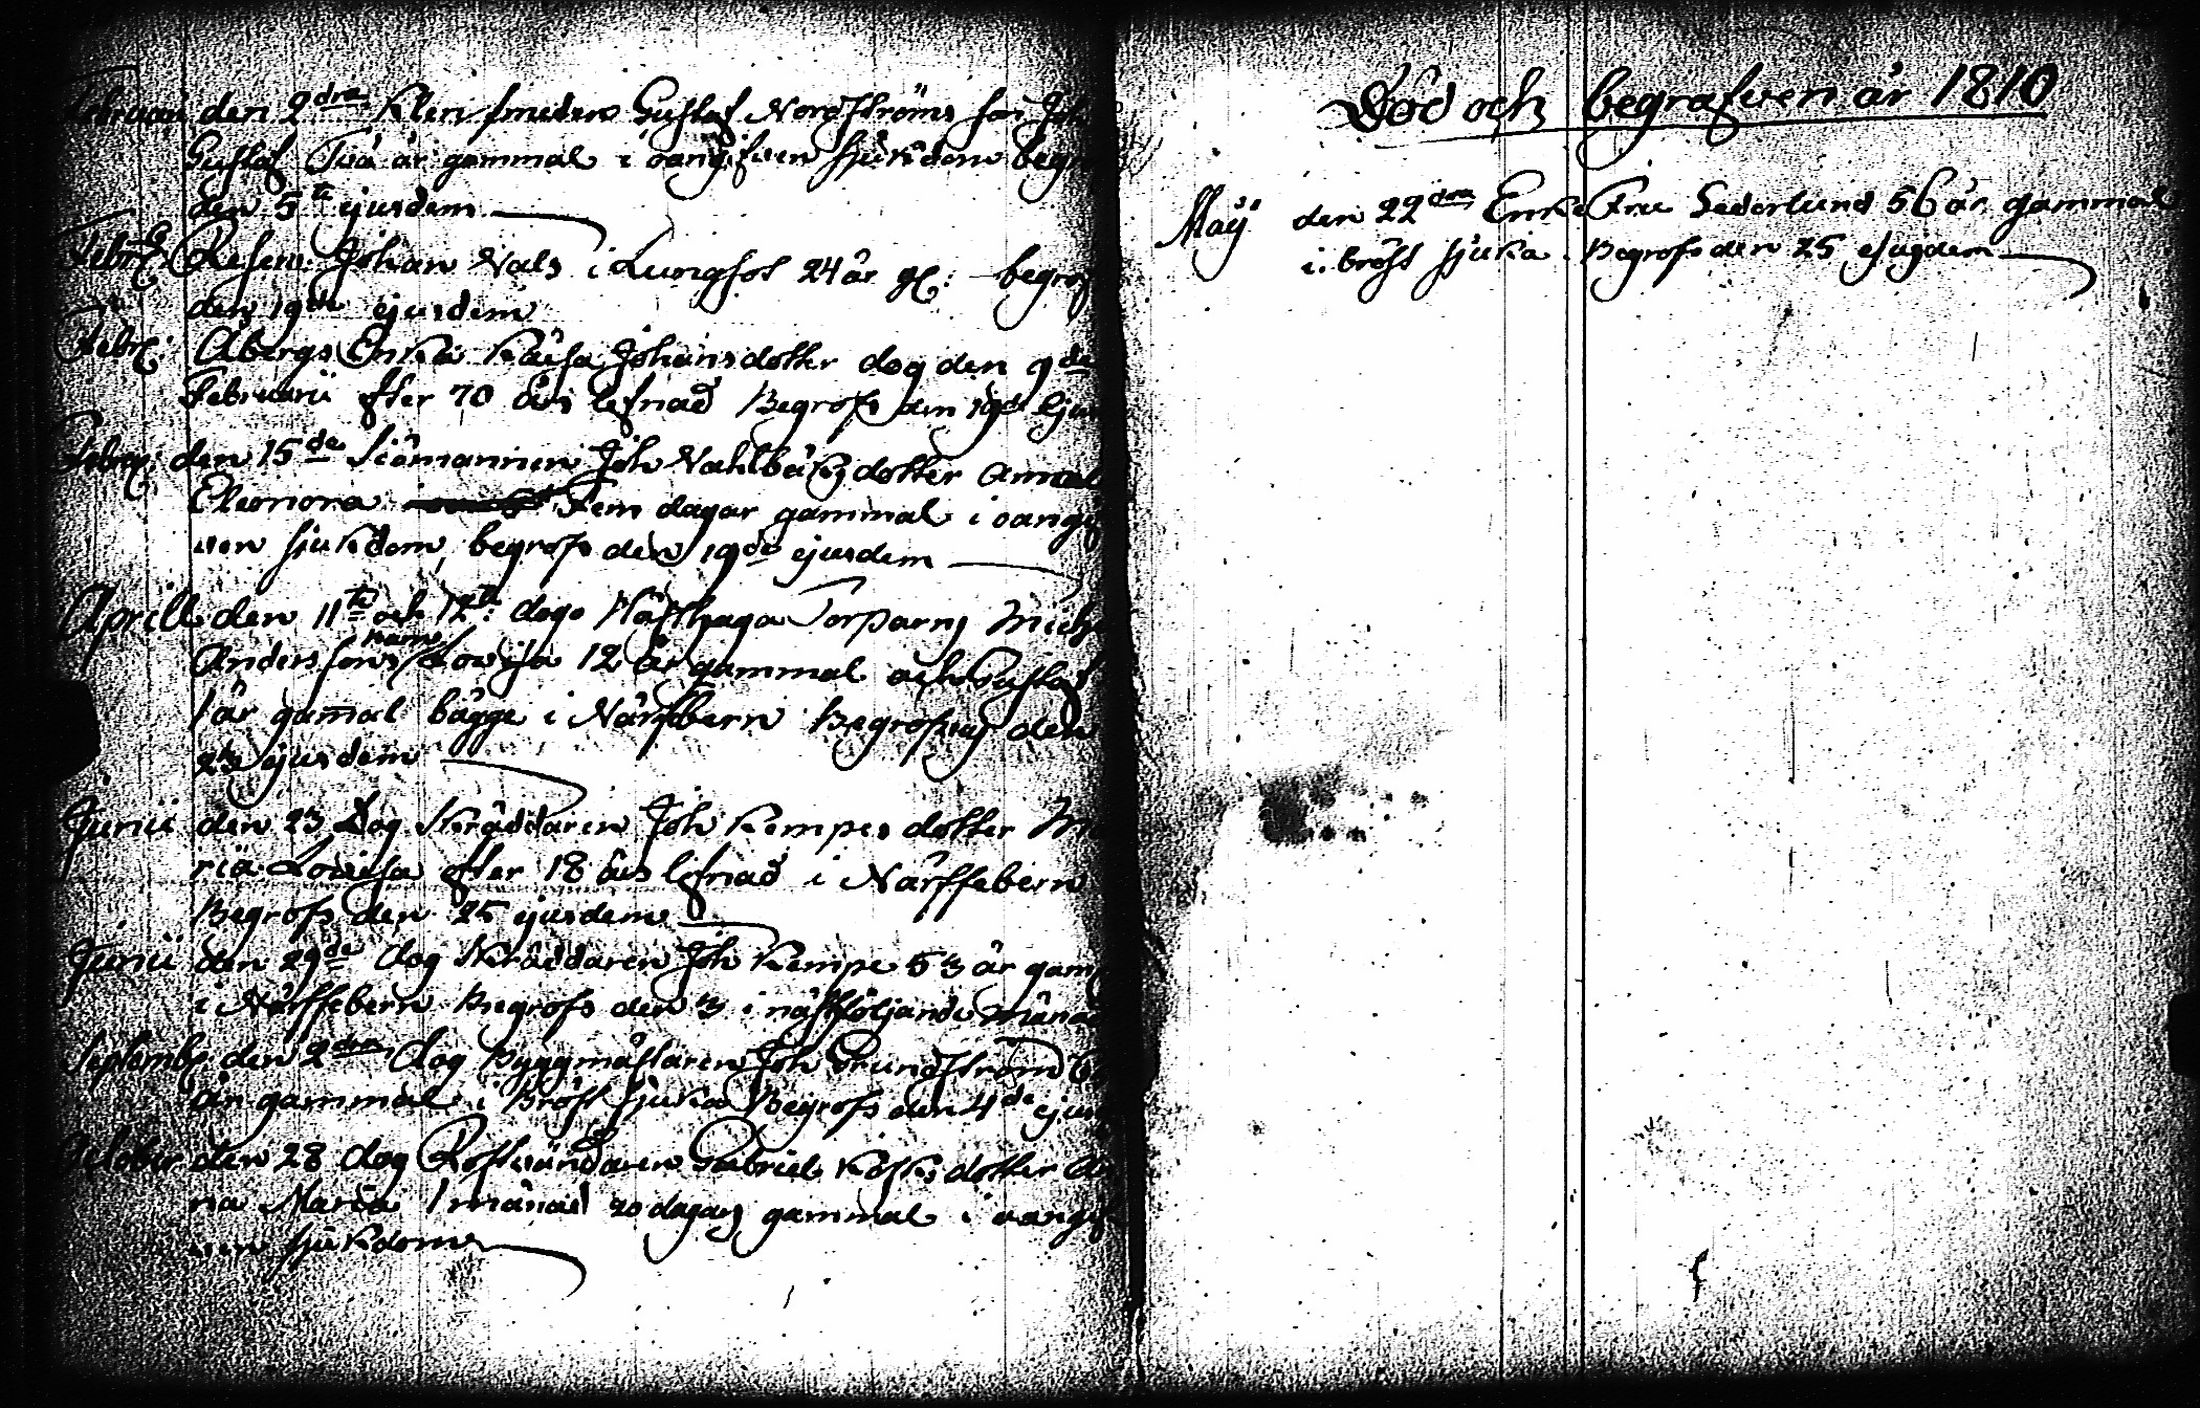 Februari den 2dra Klensmeden Gustaf Nordströms son Joh
Gustaf Två år gammal i oangifven sjukdom begr
den 5te ejusdem
Febr: Reserv: Johan Vals i Lungsot 24 år gl: begrof
den 19de ejusdem
Febr: Åbergs Enka Kaisa Johansdotter dog den 9de
Februarii efter 70 års lefnad Begrofs den 19de Ejus
Febr: den 15de Siömannen Joh Vahlbäks dotter Annal
Eleonora Fem dagar gammal i oangif
ven sjukdom, begrofs den 19de ejusdem
Aprill den 11te och 12te dogo Torparns Mich
Anderssons barn Lovisa 12 år gammal och Gustaf
1 år gamal bägge i Närffebern Begrofvos den
23 ejusdem
Junii den 23 Dog Skräddaren Joh Kempes dotter Ma
ria Lovisa efter 18 års lefnad i Närffebern
Begrofs den 25 ejusdem
Junii den 29de dog Skräddaren Joh Kempe 53 år gam
i Närffebern Begrofs den 3 i nästföljande månad
Septembr: den 2dra Dog Byggmästaren Joh Grundström
år gammal i Bröst sjuka Begrofs den 4de ejus
October den 28 dog Gabriel dotter An
na Maria 1 månad 20 dagars gammal i oangif
ven sjukdom
Död och begrafven år 1810
Maij den 22dra Enke Fru Sederlund 56 år gammal
i bröst sjuka. Begrofs den 25 ejusdem